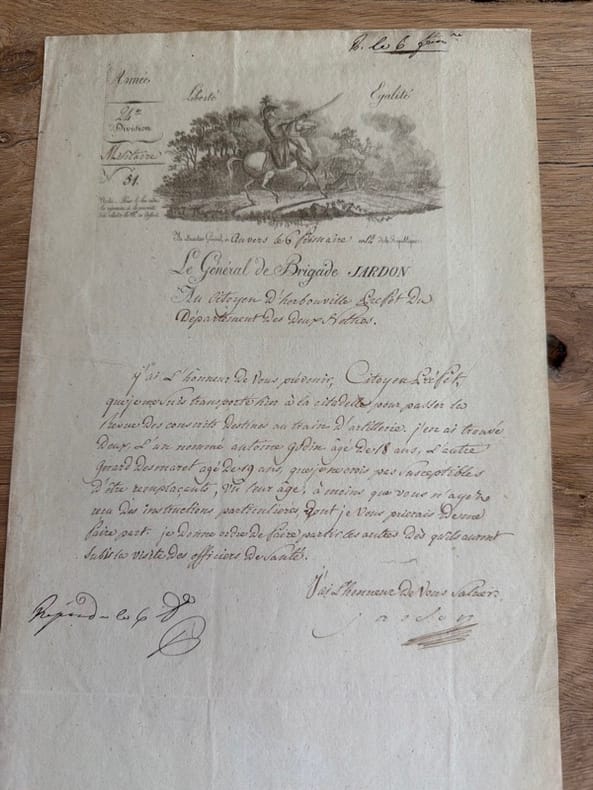 R. le 6 frim.re
Armée
Liberté
Egalité
24me
Division
Militaire
N 51.
Au quartier Général, à Anvers le 6 frimaire an 12 de la République.
Le Général de Brigade JARDON
Au Citoyen d'herbouville Préfet du
Département des deux Nethes.
j'ai L'honneur de Vous prévenir, Citoyen Préfet,
que je me suis transporté hier à la citadelle pour passer la
revue des conscrits destinés au train d'artillerie. j'en ai trouvé
deux, L'un nommé antoine âgé de 18 ans, L'autre
Girard Desmaret agé de 19 ans, que je ne crois pas susceptibles
d'être remplaçants, Vu leur âge, à moins que vous n'ayez
recu des instructions particulieres, dont je Vous prierais de me
faire part. je donne ordre de faire partir les autres dès qu'ils auront
subis la visite des officiers de Santé.
J'ai L'honneur de Vous Saluer.
jardon
Répondu le 6 do